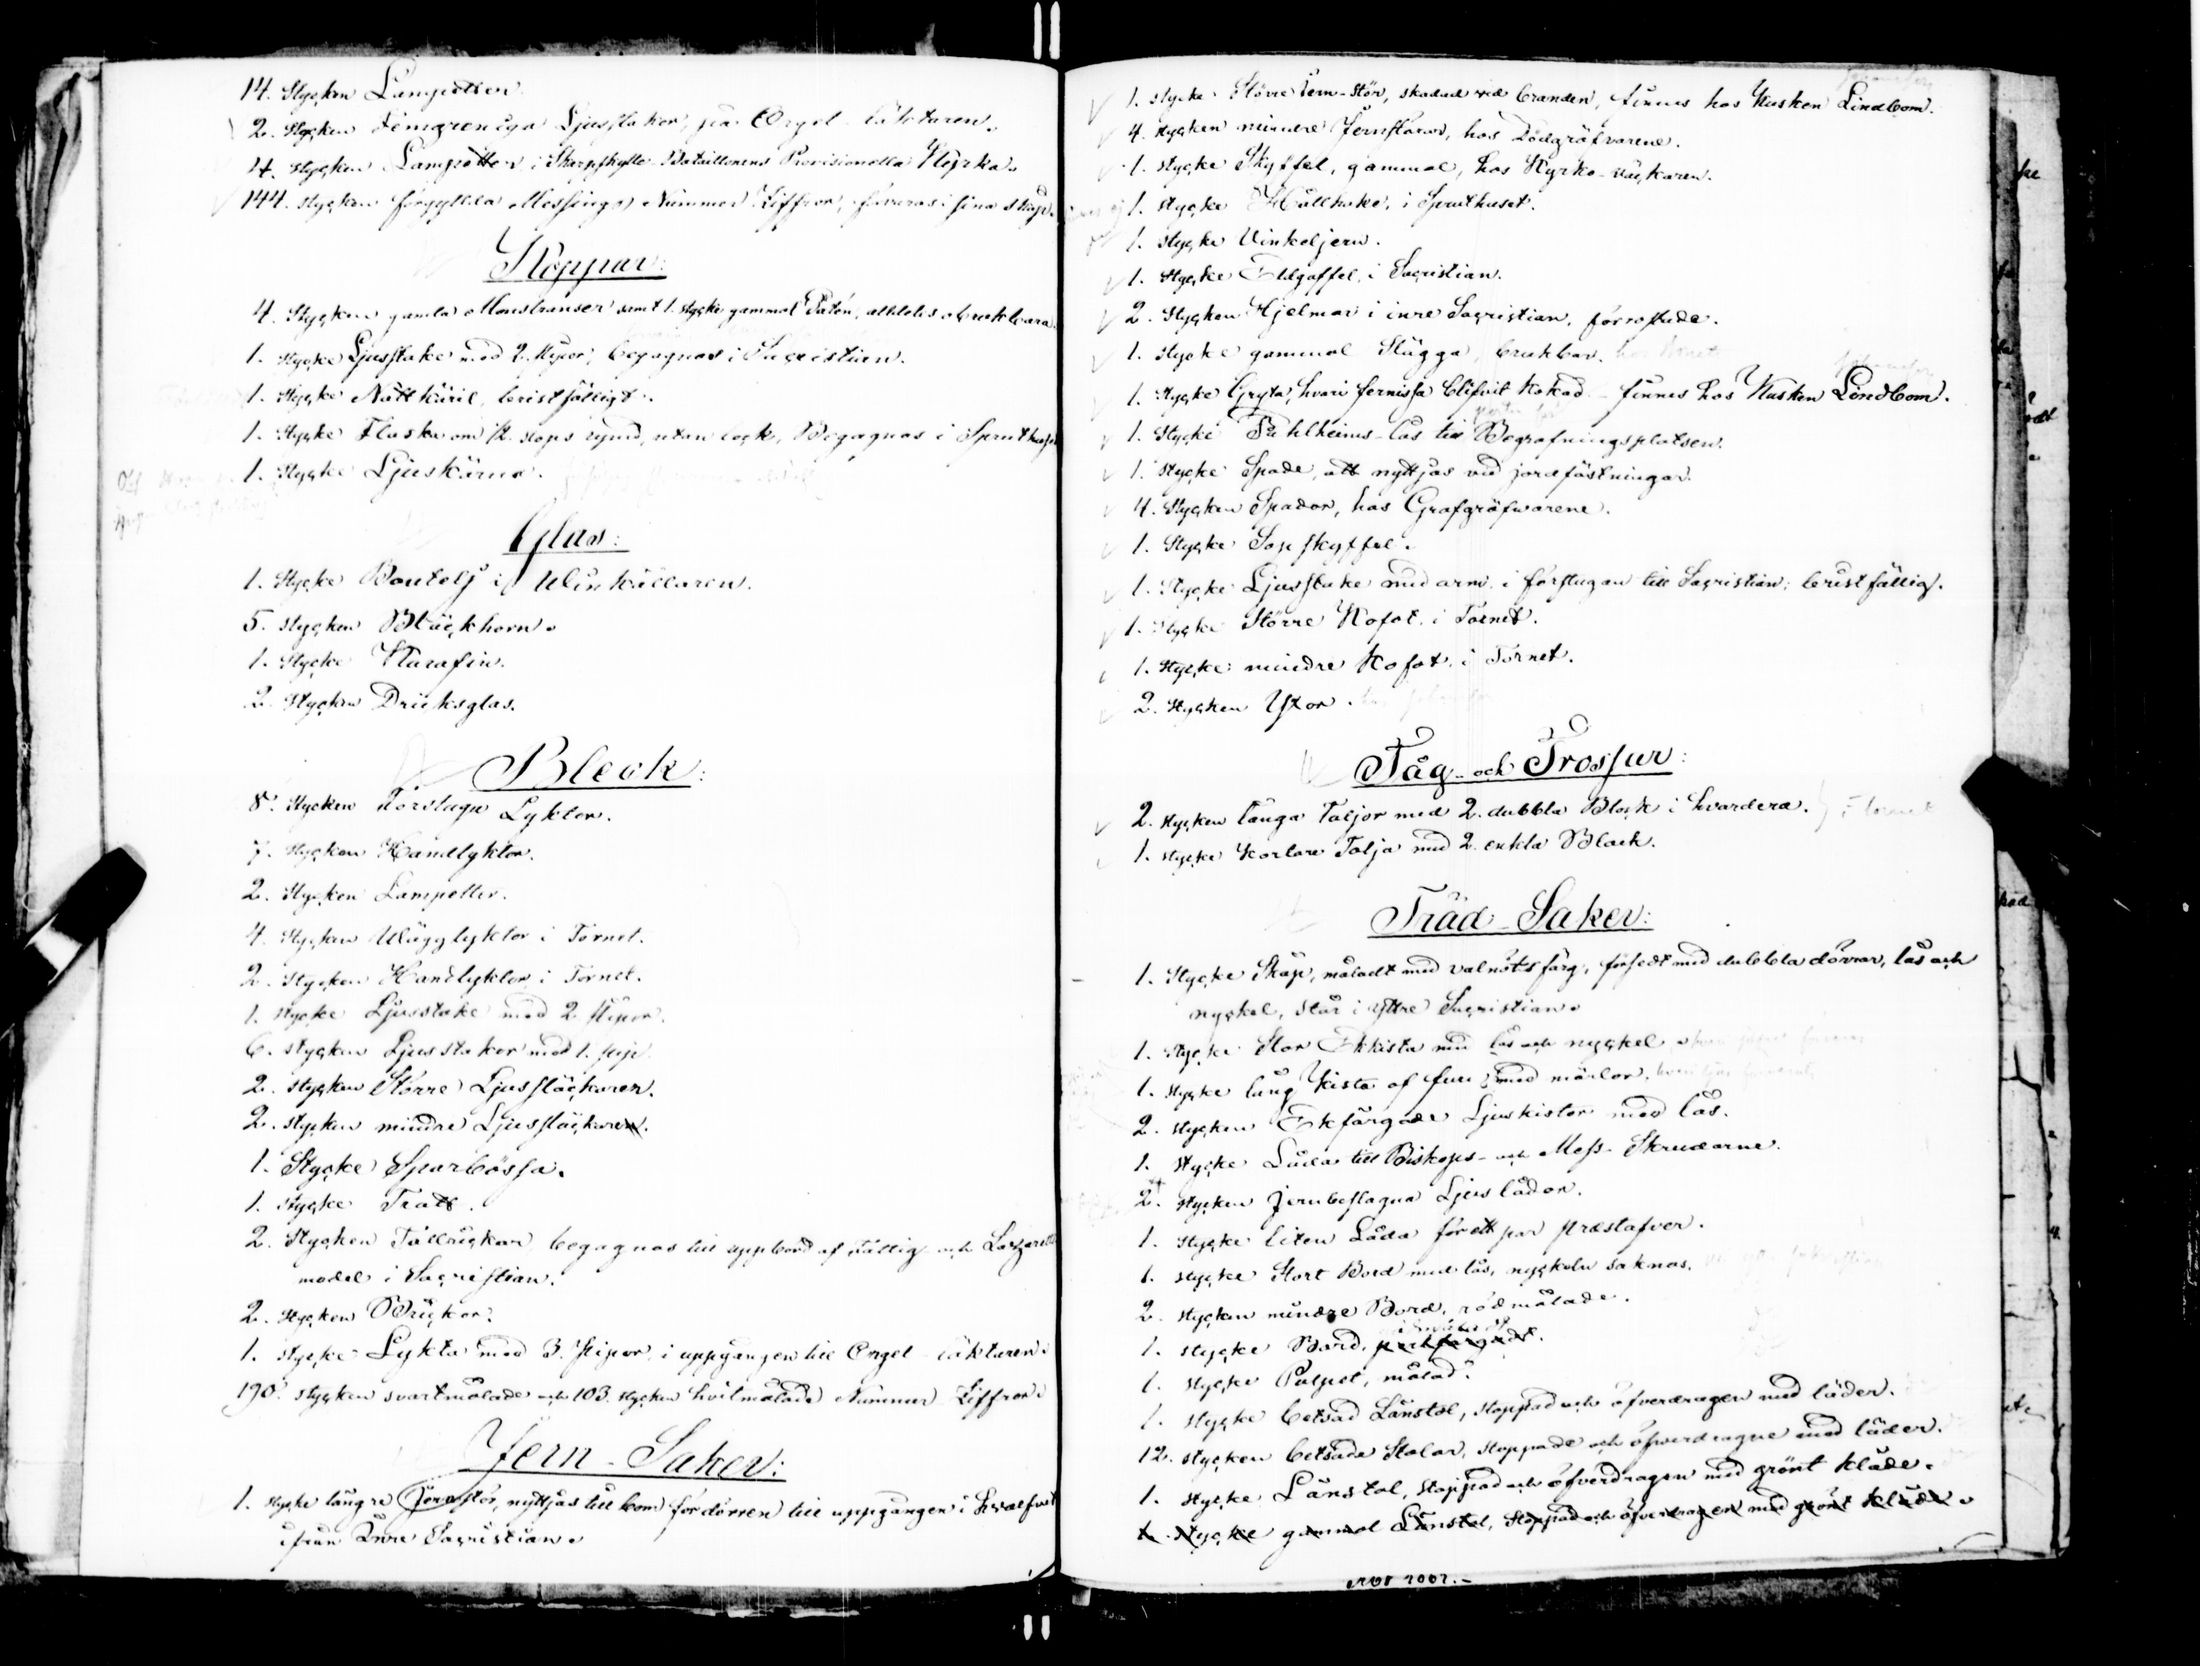 14. Stycken Lampetter.
2. Stycken Femgreniga Ljusstakor, på Orgel-läktaren.
4. Stycken Lampetter i Skarpskytte-Bataillonens Provisionella Kyrka.
144. stycken förgyllda Messings Nummer Ziffror, förvaras i sina skåp.
Koppar:
4. Stycken gamla Monstranser samt 1. stycke gammal Patén, alldeles obrukbara.
1. stycke Ljusstake med 2. Pipor, begagnas i Sacristian.
1. Stycke Nattkäril, bristfälligt.
1. Stycke Flaska om ½ stops rymd, utan lock, Begagnas i Spruthuset
1. Stycke Ljuskärna.
Glas:
1. Stycke Boutelj i Winkällaren.
5. stycken Bläckhorn.
1. Stycke Karafin.
2. Stycken Dricksglas.
Bleck:
8. Stycken Förslagn Lyktor.
7. Stycken Handlyktor.
2. Stycken Lampetter.
4. Stycken Wägglyktor i Tornet.
2. Stycken Handlyktor i Tornet.
1. Stycke Ljusstake med 2. Pipor.
6. stycken Ljusstakor med 1. pip.
2. stycken Större Ljussläckaren.
2. stycken mindre Ljussläckaren.
1. Stycke Sparbössa.
1. Stycke Tratt.
2. Stycken Tallrickar, begagnas till uppbörd af Fattig- och Lazaretts
medel i Sacristian.
2. Stycken Brickor.
1. Stycke Lykta med 3. Pipor, i uppgången till Orgel-läktaren.
190. stycken svartmålade och 103. stycken hvitmålade Nummer Ziffror.
Jern-Saker:
1. Stycke längre Jernstör, nyttjas till bom för dörren till uppgången i Hvalfvet
ifrån Inre Sacristian.
1. stycke Större Jern-stör, skadad vid branden, finnes hos Kusken Lindbom.
4. stycken mindre Jernstörar, hos Dödgräfvarene.
1. stycke Skyffel, gammal, hos Kyrko-väcktaren.
1. stycke Hållhake, i Spruthuset.
1. stycke Vinkeljern.
1. Stycke Eldgaffel, i Sacristian.
2. Stycken Hjelmar i inre Sacristian, förrostade.
1. Stycke gammal Slägga, brukbar.
1. Stycke Gryta, hvari fernissa blifvit kokad – finnes hos Kusken Lindbom.
1. Stycke Pahlheims-lås till Begrafningsplatsen.
1. stycke Spade, att nyttjas vid jordfästningar.
4. Stycken Spador, hos Grafgräfwarene.
1. Stycke Sopskyffel.
1. Stycke Ljusstake med arm i förstugan till Sacristian; bristfällig.
1. Stycke Större Kofot i Tornet.
1. Stycke mindre Kofot i Tornet.
2. Stycken Yxor.
Tåg- och Trossar:
2. stycken långa Taljor med 2. dubbla Block i hvardera. } i Tornet
1. stycke kortare Talja med 2. enkla Block.
Träd-Saker:
1. Stycke Skåp, måladt med valnöts färg, försedt med dubbla dörrar, lås och
nyckel, står i yttre Sacristian.
1. Stycke Stor Ekkista med lås och nyckel
1. stycke lång Kista af furu med märlor,
2. stycken Ekfärgade Ljuskistor med lås.
1. stycke Låda till Biskops- och Mess-Skrudarne.
2. stycken Jernbeslagna Ljuslådor.
1. stycke liten Låda för ett par præstafver.
1. stycke Stort Bord med lås, nyckeln saknas.
2. stycken mindre Bord, rödmålade.
1. stycke Bord,
1. stycke Pulpet, målad.
1. stycke betsad Länstol, stoppad och öfverdragen med läder.
12. stycken betsade Stolar, stoppade och öfwerdragne med läder.
1. stycke Länstol, stoppad och öfverdragen med grönt kläde.
1. stycke gammal Länstol, stoppad och öfverdragen med grönt kläde.